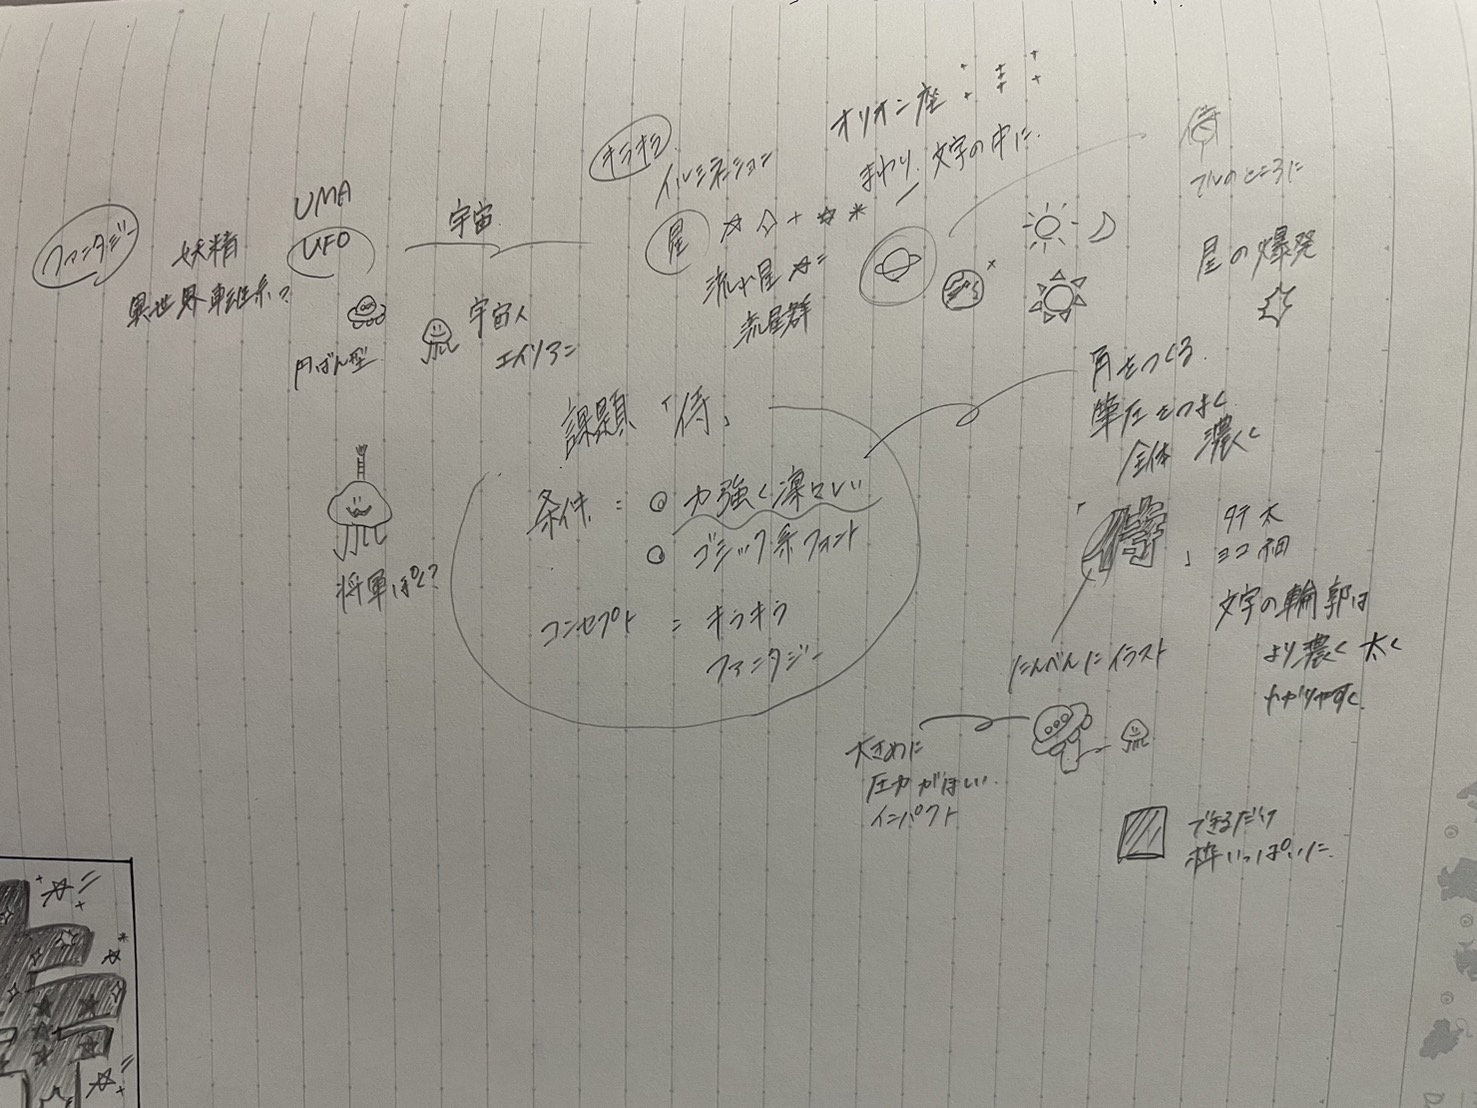 ファンタジー
妖精
異世界転生系?
UMA
UFO
円ばん型
宇宙
宇宙人
エイリアン
将軍ぽく?
キラキラ
イルミネーション
星
流れ星
流星群
オリオン座
まわり、文字の中に
侍
てんのところに
星の爆発
課題「侍」
条件: 力強く凛々しい
ゴシック系フォント
コンセプト = キラキラ
ファンタジー
角をつくる
筆圧をつよく
全体 濃く
「侍」
タテ 太
ヨコ 細
文字の輪郭は
より濃く 太く
わかりやすく
にんべんにイラスト
大きめに
圧力がほしい
インパクト
できるだけ
枠いっぱいに